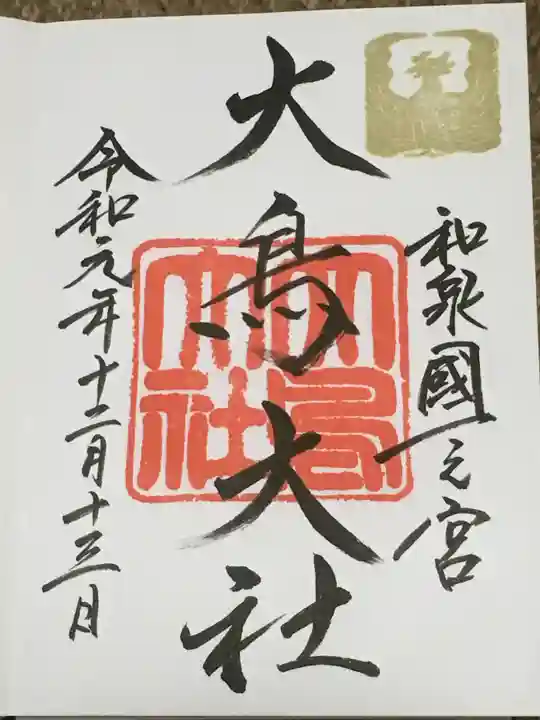 和泉國一之宮
大鳥大社
大鳥大社
令和元年十二月十三日